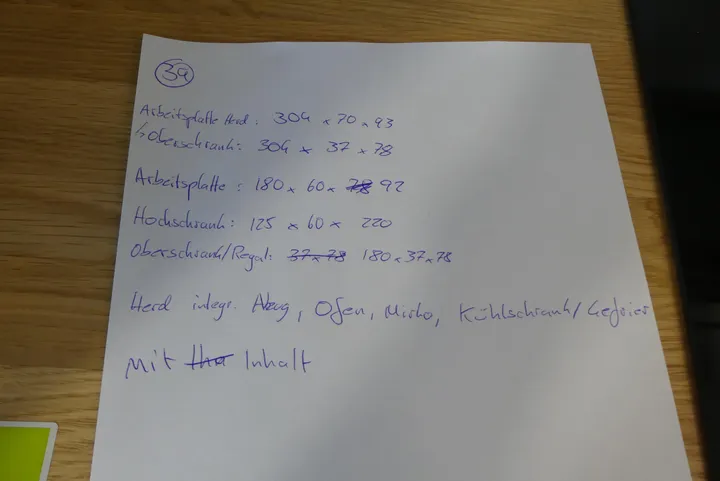 3a
Arbeitsplatte Herd: 304 x 70 x 93
↳Oberschrank: 304 x 37 x 78
Arbeitsplatte: 180 x 60 x 78 92
Hochschrank: 125 x 60 x 220
Oberschrank/Regal: 37 x 78 180 x 37 x 78
Herd integr. Abzug, Ofen, Mikro, Kühlschrank/Gefrier
Mit Inhalt